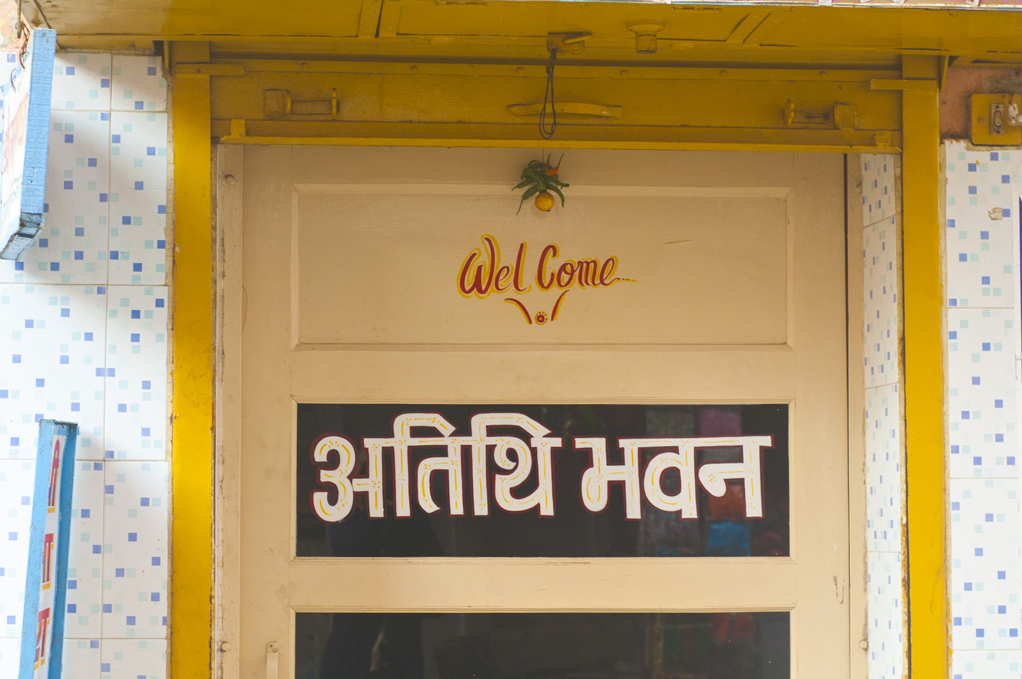 Wel Come
अतिथि भवन